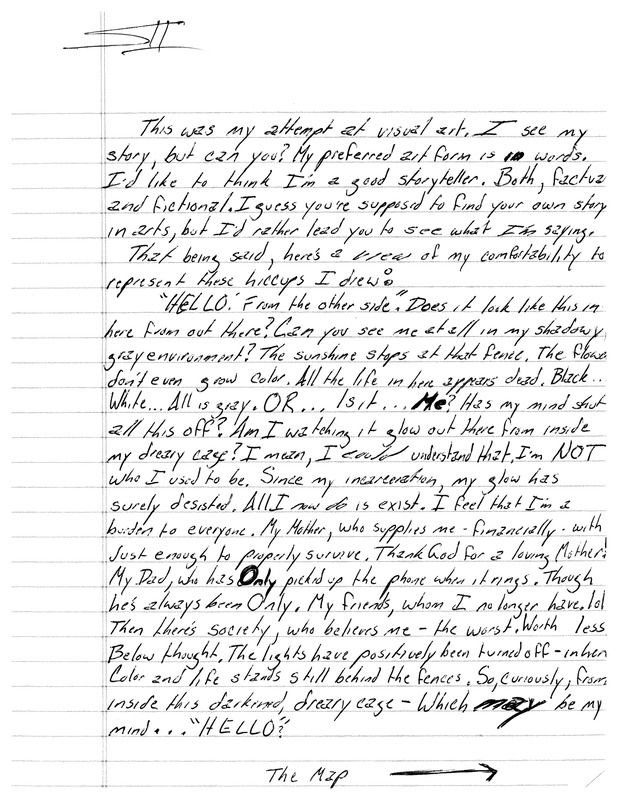 This was my attempt at visual art. I see my
story, but can you? My preferred art form is in words.
I'd like to think I'm a good storyteller. Both, factua
and fictional. I guess you're supposed to find your own story
in arts, but I'd rather lead you to see what I'm saying.
That being said, here's a view of my comfortability to
represent these hiccups I drew:
"HELLO! From the other side". Does it look like this in
here from out there? Can you see me at all in my shadowy,
gray environment? The sunshine stops at that fence. The flowe
don't even grow color. All the life in here appears dead. Black...
White... All is gray. OR... Is it... Me? Has my mind shut
all this off? Am I watching it glow out there from inside
my dreary cage? I mean, I could understand that. I'm NOT
who I used to be. Since my incarceration, my glow has
surely desisted. All I now do is exist. I feel that I'm a
burden to everyone. My Mother, who supplies me - financially - with
Just enough to properly survive. Thank God for a loving Mother!
My Dad, who has Only picked up the phone when it rings. Though
he's always been Only. My friends, whom I no longer have. lol
Then there's society, who believes me - the worst. Worth less
Below thought. The lights have positively been turned off - in her
Color and life stands still behind the fences. So, curiously, from
inside this darkened, dreary cage - Which may be my
mind... "HELLO?"
The Map →